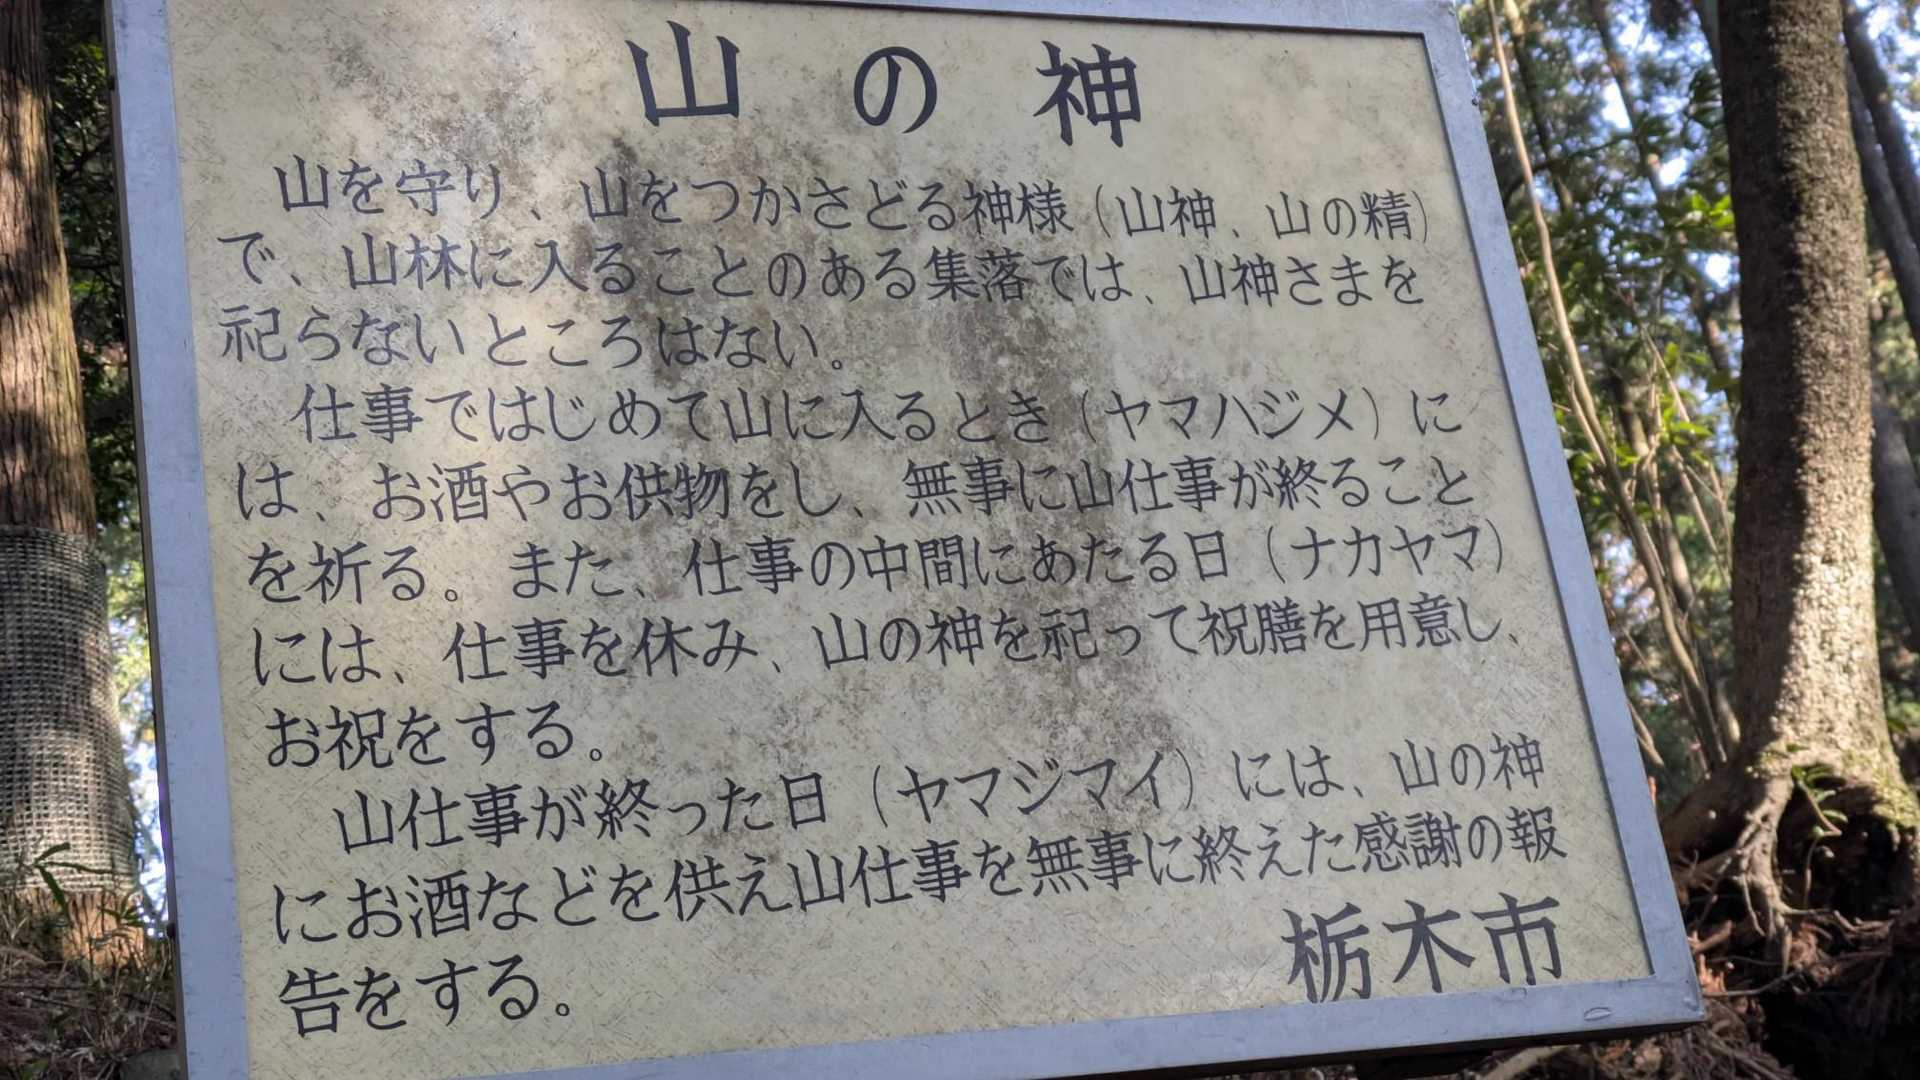 山の神
山を守り、山をつかさどる神様（山神、山の精）
で、山林に入ることのある集落では、山神さまを
祀らないところはない。
仕事ではじめて山に入るとき（ヤマハジメ）に
は、お酒やお供物をし、無事に山仕事が終ること
を祈る。また、仕事の中間にあたる日（ナカヤマ）
には、仕事を休み、山の神を祀って祝膳を用意し、
お祝をする。
山仕事が終った日（ヤマジマイ）には、山の神
にお酒などを供え山仕事を無事に終えた感謝の報
告をする。
栃木市